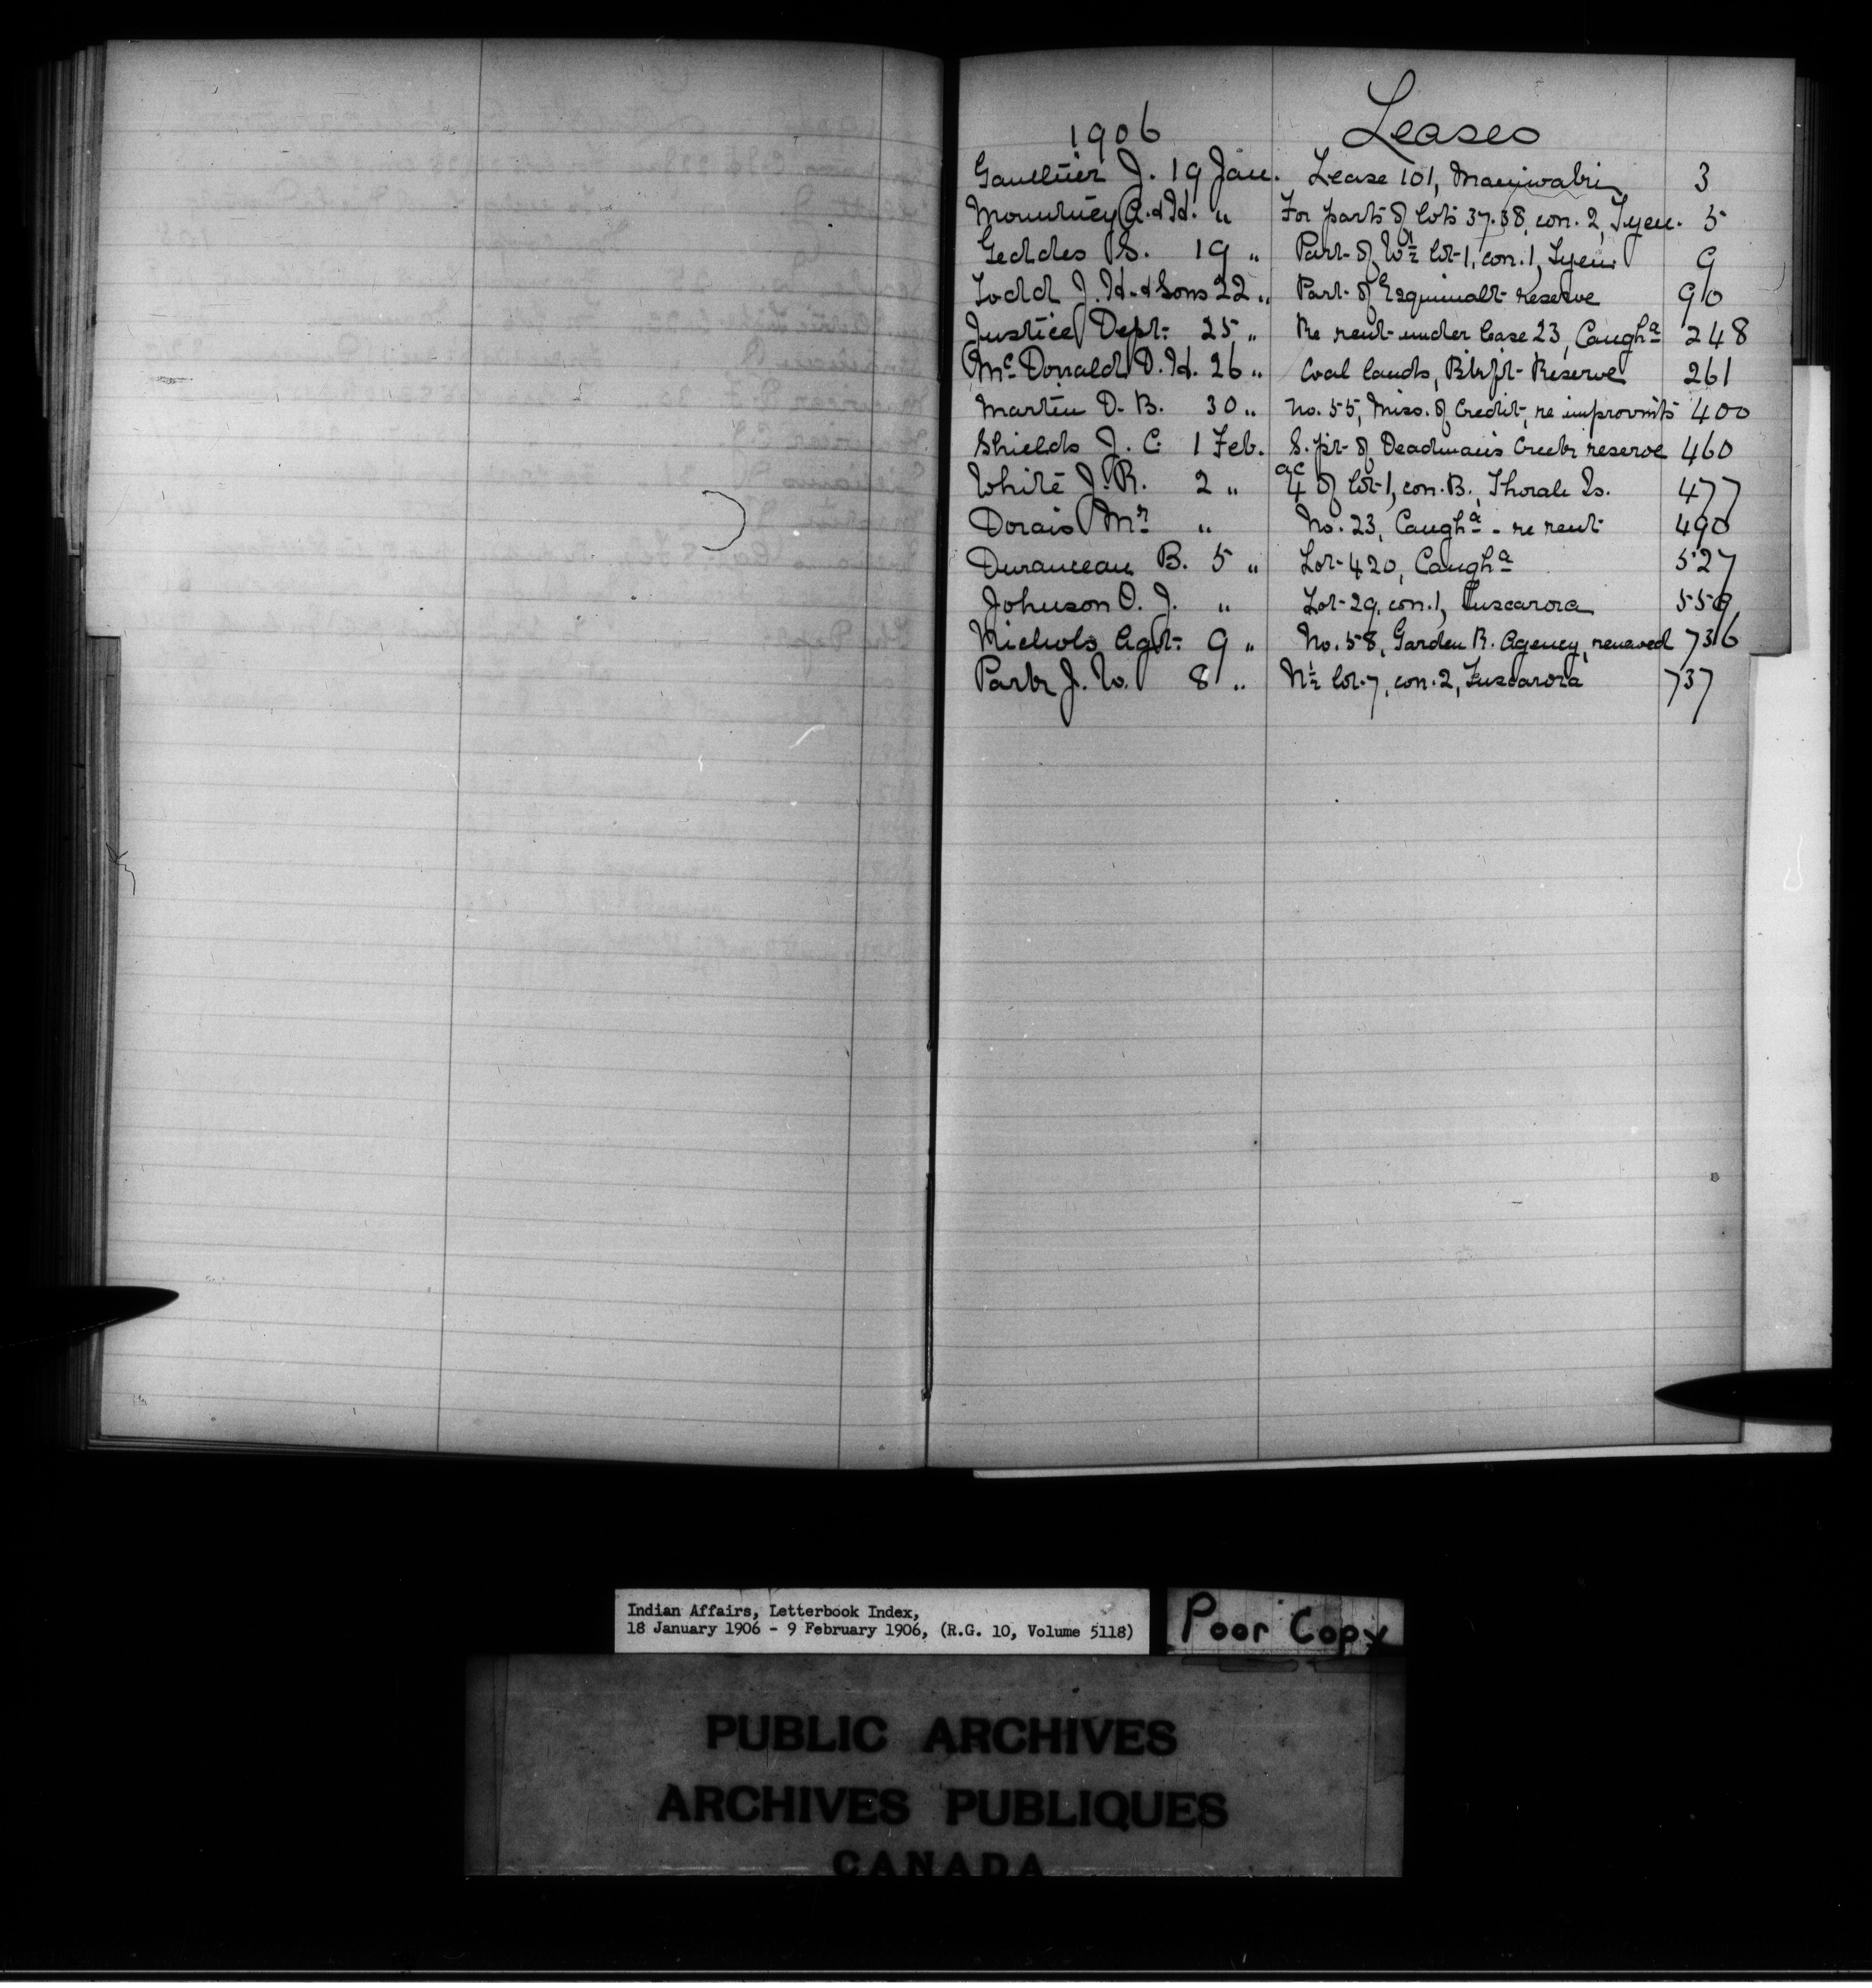 1906 Leases
Gaulthier J. 19 Jan. Lease 101, Maniwaki 3
Mounteney A. & H. " For parts of lots 37.38, con. 2, Tyen. 5
Geddes S. 19 " Part of W½ lot 1, con. 1, Tyen. 9
Todd J. H. & Sons 22 " Part of Esquimalt reserve 90
Justice Dept. 25 " Re rent under lease 23, Caugha 248
McDonald D. H. 26 " Coal lands, Blkft Reserve 261
Martin D. B. 30 " No. 55, Miss. of Credit, re improvmts 400
Shields J. C. 1 Feb. S. pt of Deadman's Creek reserve 460
White J. R. 2 " 4 ac of lot 1, con. B., Thorah Is. 477
Dorais Mr " No. 23, Caugha - re rent 490
Duranceau B. 5 " Lot 420, Caugha 527
Johnson O. J. " Lot 29, con. 1, Tuscarora 559
Nichols Agt. 9 " No. 58, Garden R. Agency, renewed 736
Park J. W. 8 " N½ lot 7, con. 2, Tuscarora 737
Indian Affairs, Letterbook Index,
18 January 1906 - 9 February 1906, (R.G. 10, Volume 5118)
Poor Copy
PUBLIC ARCHIVES
ARCHIVES PUBLIQUES
CANADA